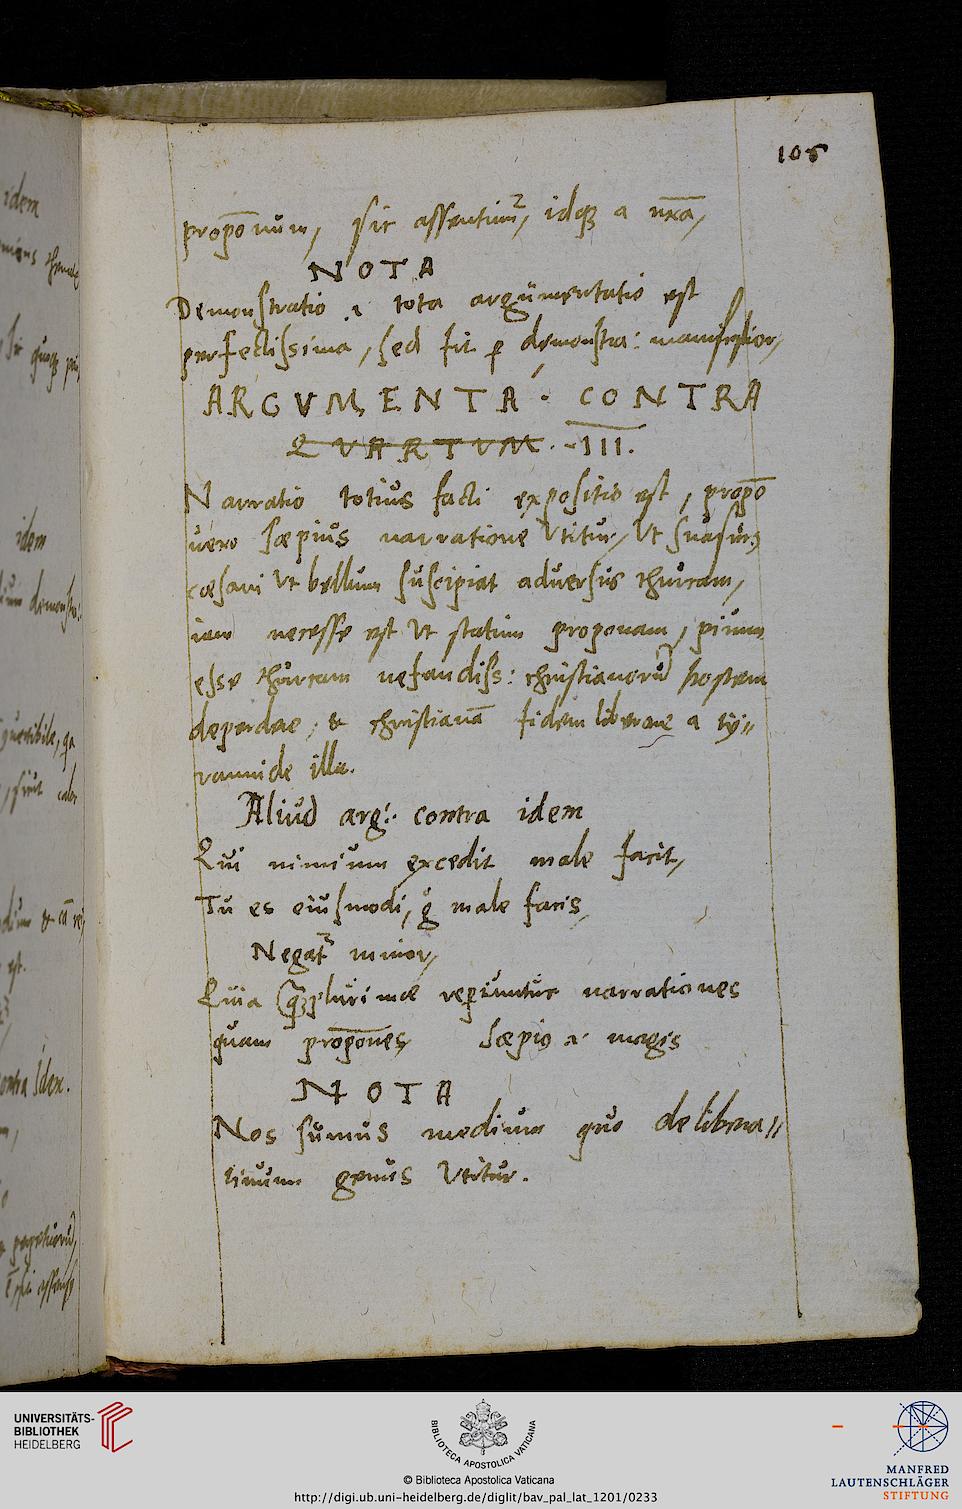 105
propõnum, sit assentimr, idqꝫ a nrã,
NOTA
Demonstratio .i. tota argumentatio est
perfectissima, sed fit ꝑ demonstra: manifestior,
ARGVMENTA. CONTRA
QVARTVM. -III.
Narratio totius facti expositio est, propõ
uero sæpius narratione Vtitur, Vt suasurꝫ
cæsari Vt bellum suscipiat aduersus thurcam,
iam necesse est Vt statim proponam, pium
esse thurcam nefandiss: christianorũ hostem
deperdere, & christianã fidem liberare a ty=
rannide illa.
Aliud arg:. contra idem
Qui nimium excedit male facit,
Tu es eiusmodi, g̊ male facis,
Negatr minor,
Quia plurimæ reperiuntur narrationes
quam propões, sæpio magis
NOTA
Nos sumus medium quo delibera=
tiuum genus Vtitur.
idem
idem
contra Idem.
UNIVERSITÄTS-
BIBLIOTHEK
HEIDELBERG
BIBLIOTECA APOSTOLICA VATICANA
© Biblioteca Apostolica Vaticana
http://digi.ub.uni-heidelberg.de/diglit/bav_pal_lat_1201/0233
MANFRED
LAUTENSCHLÄGER
STIFTUNG